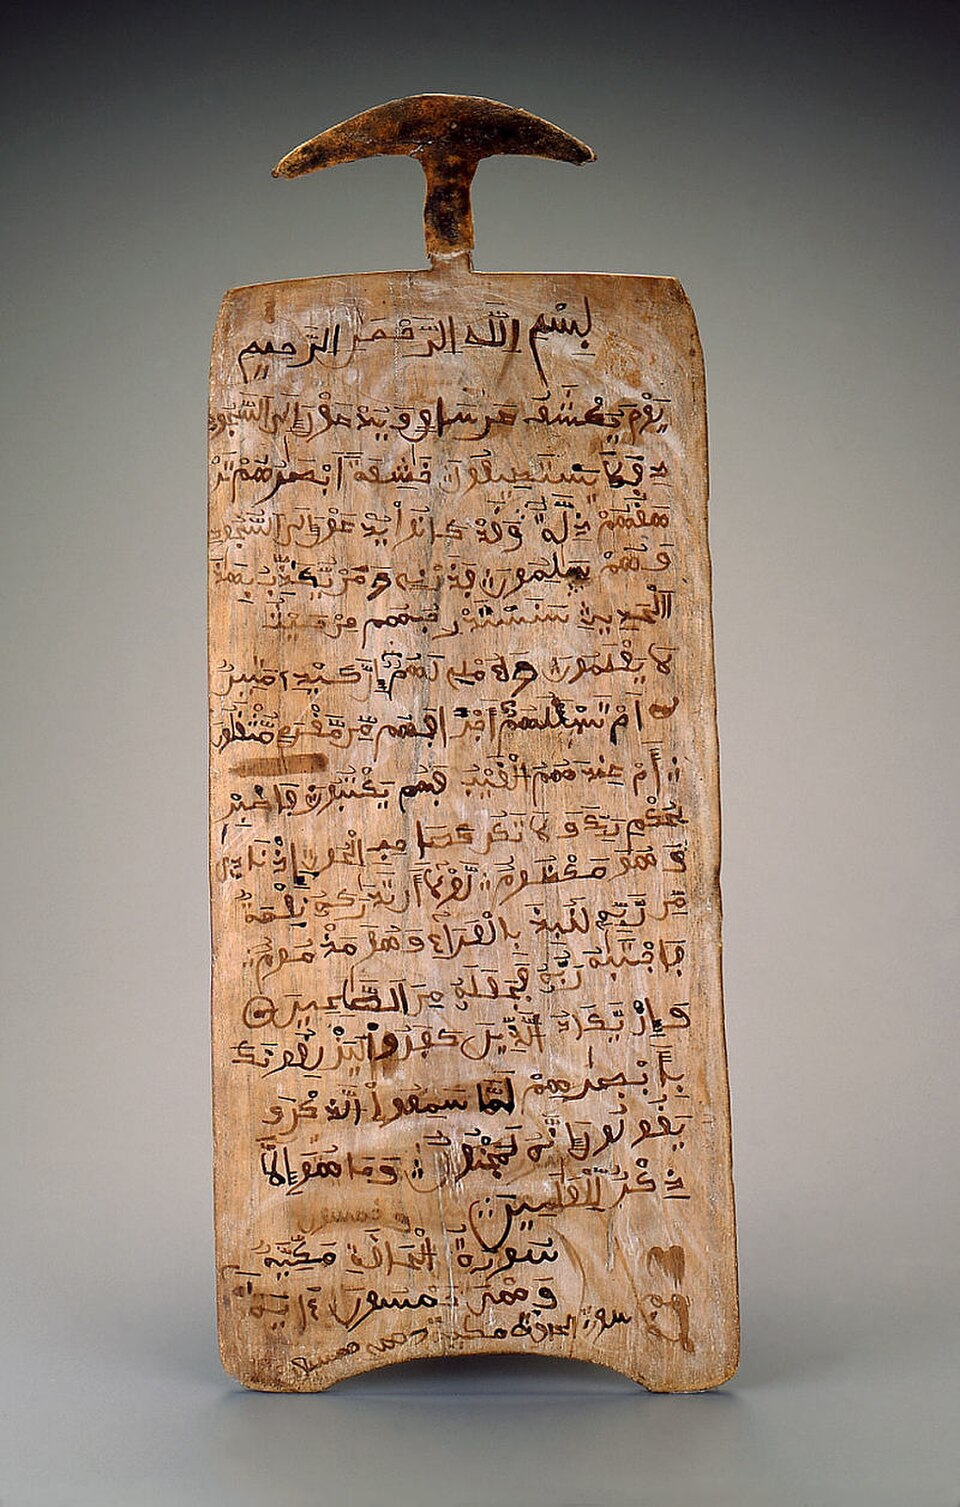 بِسْمِ اللَّهِ الرَّحْمَنِ الرَّحِيمِ
يَوْمَ يُكْشَفُ عَن سَاقٍ وَيُدْعَوْنَ إِلَى السُّجُودِ
فَلَا يَسْتَطِيعُونَ خَشِعَةً أَبْصَرُهُمْ تَرْ
هَقُهُمْ ذِلَّةٌ وَقَدْ كَانُوا يُدْعَوْنَ إِلَى السُّجُودِ
وَهُمْ سَلِمُونَ فَذَرْنِي وَمَنْ يُكَذِّبُ بِهَذَا
الْحَدِيثِ سَنَسْتَدْرِجُهُم مِّنْ حَيْثُ
لَا يَعْلَمُونَ وَأُمْلِي لَهُمْ إِنَّ كَيْدِي مَتِينٌ
أَمْ تَسْئَلُهُمْ أَجْرًا فَهُم مِّن مَّغْرَمٍ مُّثْقَلُونَ
أَمْ عِندَهُمُ الْغَيْبُ فَهُمْ يَكْتُبُونَ فَاصْبِرْ
لِحُكْمِ رَبِّكَ وَلَا تَكُن كَصَاحِبِ الْحُوتِ إِذْ نَادَى
وَهُوَ مَكْظُومٌ لَوْلَا أَن تَدَارَكَهُ نِعْمَةٌ
مِّن رَّبِّهِ لَنُبِذَ بِالْعَرَاءِ وَهُوَ مَذْمُومٌ
فَاجْتَبَهُ رَبُّهُ فَجَعَلَهُ مِنَ الصَّلِحِينَ
وَإِنْ يَكَادُ الَّذِينَ كَفَرُوا لَيُزْلِقُونَكَ
بِأَبْصَرِهِمْ لَمَّا سَمِعُوا الذِّكْرَ وَ
يَقُولُونَ إِنَّهُ لَمَجْنُونٌ وَمَا هُوَ إِلَّا
ذِكْرٌ لِّلْعَلَمِينَ
سُورَةُ الْحَاقَّةِ مَكِّيَّةٌ
خَمْسُونَ ءَايَةً
سورة الحاقة مكية